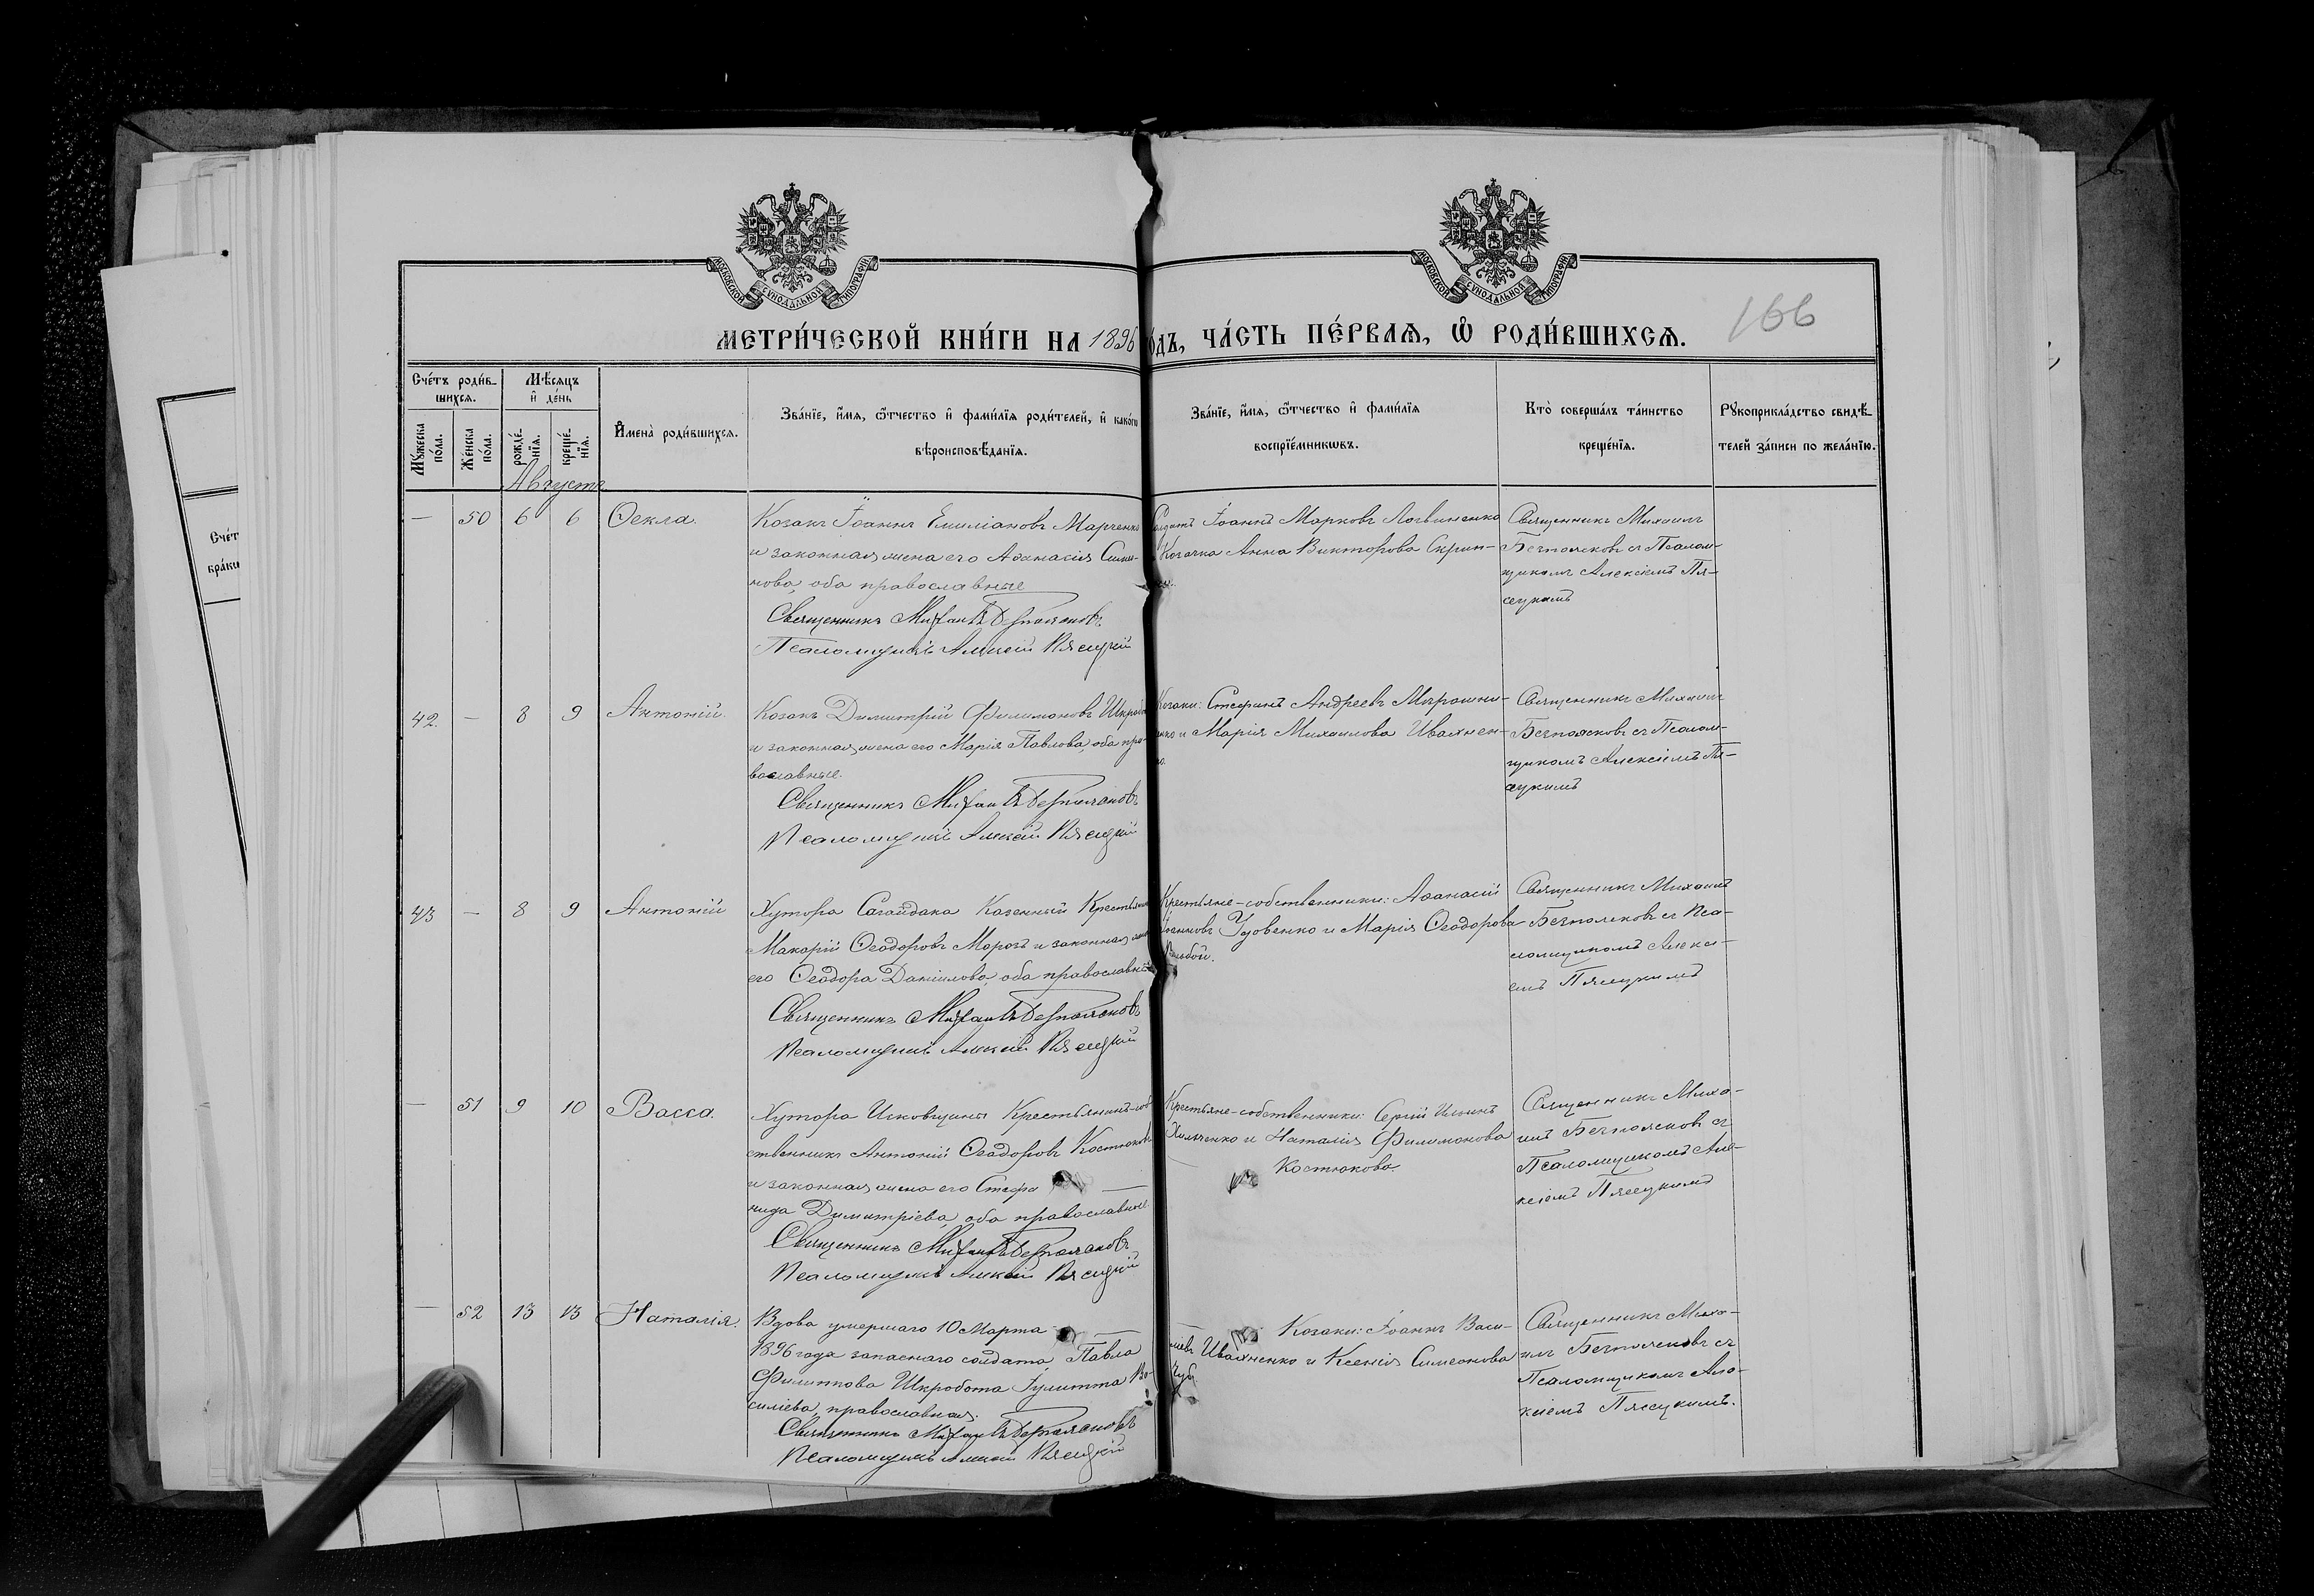 МОСКОВСКОЙ СѴНОДАЛЬНОЙ ТИПОГРАФІИ
МОСКОВСКОЙ СѴНОДАЛЬНОЙ ТИПОГРАФІИ
166
МЕТРИ́ЧЕСКОЙ КНИ́ГИ НА 1896 ГО́ДЪ, ЧА́СТЬ ПЕ́РВАѦ, Ѡ҆ РОДИ́ВШИХСѦ.
Сче́тъ роди́в-
шихсѧ.
Мꙋ́жеска
по́ла.
Же́нска
по́ла.
Мѣ́сѧцъ
и҆ де́нь
рожде́-
нїѧ.
креще́-
нїѧ.
И҆мена̀ роди́вшихсѧ.
Зва́нїе, и҆́мѧ, ѻ҆́тчество и҆ фами́лїѧ роди́телей, и҆ како́гѡ
вѣроисповѣ́данїѧ.
Зва́нїе, и҆́мѧ, ѻ҆́тчество и҆ фами́лїѧ
воспрїе́мникѡвъ.
Кто̀ соверша́лъ та́инство
креще́нїѧ.
Рꙋкоприкла́дство свидѣ́-
телей за́писи по жела́нїю.
Августъ
— 50 6 6 Ѳекла.
Козакъ Іоаннъ Емиліановъ Марченко
и законная жена его Аѳанасія Симо-
нова, оба православные
Священникъ Михаилъ Безпоясковъ
Псаломщикъ Алексій Пясецкій
Солдатъ Іоаннъ Марковъ Логвиненко
Козачка Анна Викторова Скрип-
Священникъ Михаилъ
Безпоясковъ съ Псалом-
щикомъ Алексіемъ Пя-
сецкимъ
42. — 8 9 Антоній.
Козакъ Димитрій Филимоновъ
и законная жена его Марія Павлова, оба пра-
вославные.
Священникъ Михаилъ Безпоясковъ
Псаломщикъ Алексій Пясецкій
Козаки: Стефанъ Андреевъ Мирошни-
ченко и Марія Михаилова Ивахнен-
ко.
Священникъ Михаилъ
Безпоясковъ съ Псалом-
щикомъ Алексіемъ Пя-
сецкимъ
43 — 8 9 Антоній
Хутора Сагайдака Казенный Крестьянинъ
Макарій Ѳеодоровъ Морозъ и законная жена
его Ѳеодора Даніилова, оба православные
Священникъ Михаилъ Безпоясковъ
Псаломщикъ Алексій Пясецкій
Крестьяне-собственники: Аѳанасій
Іоанновъ Удовенко и Марія Ѳеодорова
Священникъ Михаилъ
Безпоясковъ съ Пса-
ломщикомъ Алексі-
емъ Пясецкимъ
— 51 9 10 Васса.
Хутора Исковщины Крестьянинъ-соб-
ственникъ Антоній Ѳеодоровъ Костюковъ
и законная жена его Стефа —
нида Димитріева, оба православные
Священникъ Михаилъ Безпоясковъ
Псаломщикъ Алексій Пясецкій
Крестьяне-собственники: Сергій Ильинъ
и Наталія Филимонова
Костюкова.
Священникъ Миха-
илъ Безпоясковъ съ
Псаломщикомъ Але-
ксіемъ Пясецкимъ
— 52 13 13 Наталія.
Вдова умершаго 10 Марта
1896 года запаснаго солдата Павла
Филиппова Шкробота Іулитта Ва-
силіева, православная.
Священникъ Михаилъ Безпоясковъ
Псаломщикъ Алексій Пясецкій
Козаки: Іоаннъ Васи-
ліевъ Ивахненко и Ксенія Симеонова
Священникъ Миха-
илъ Безпоясковъ съ
Псаломщикомъ Але-
ксіемъ Пясецкимъ.